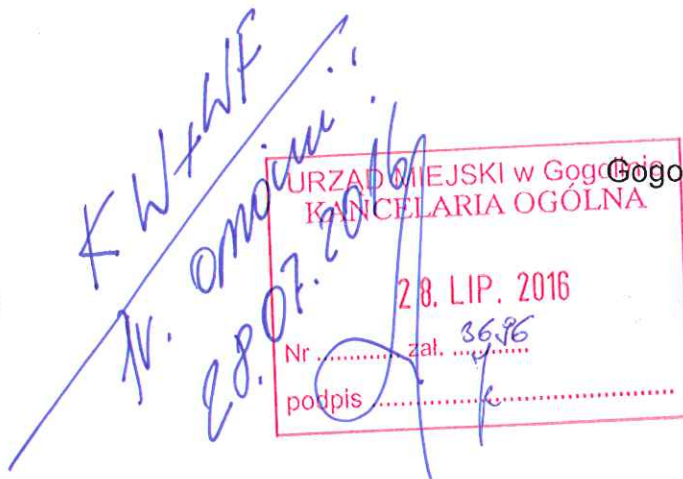 KW+WF
28.07.2016
URZĄD MIEJSKI w Gogolinie
Gogo
KANCELARIA OGÓLNA
28. LIP. 2016
Nr ............ zał. ............
3696
podpis ............